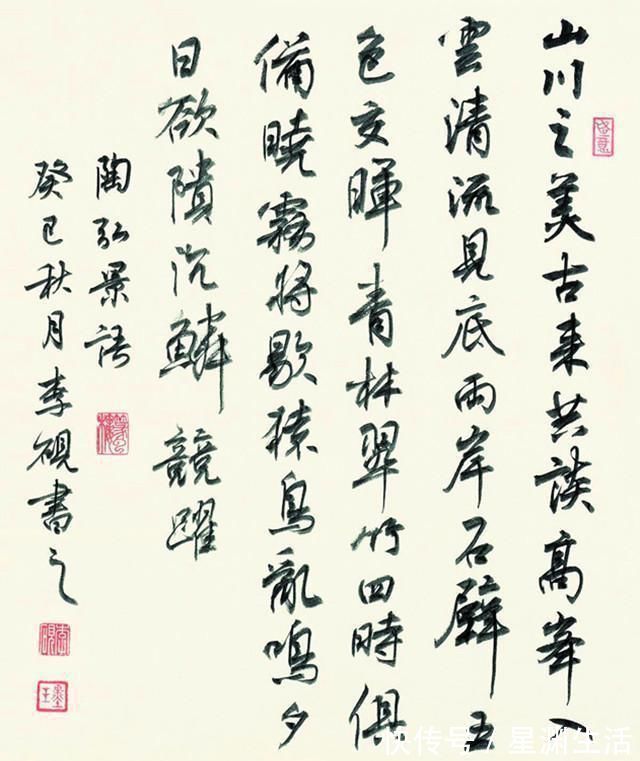 山川之美古来共談高峯入
雲清流見底兩岸石壁五
色交暉青林翠竹四時俱
備曉霧將歇猿鳥亂鳴夕
日欲隤沉鱗競躍
陶弘景語
癸巳秋月李硯書之
李硯
快传号/星渊生活